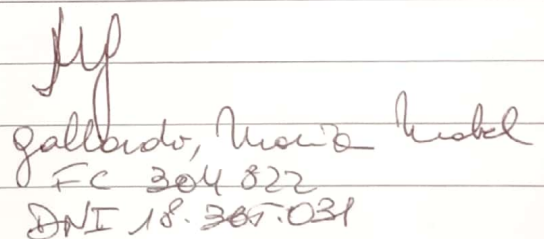 Gallardo, Maria Mabel
FC 304 822
DNI 18.305.031